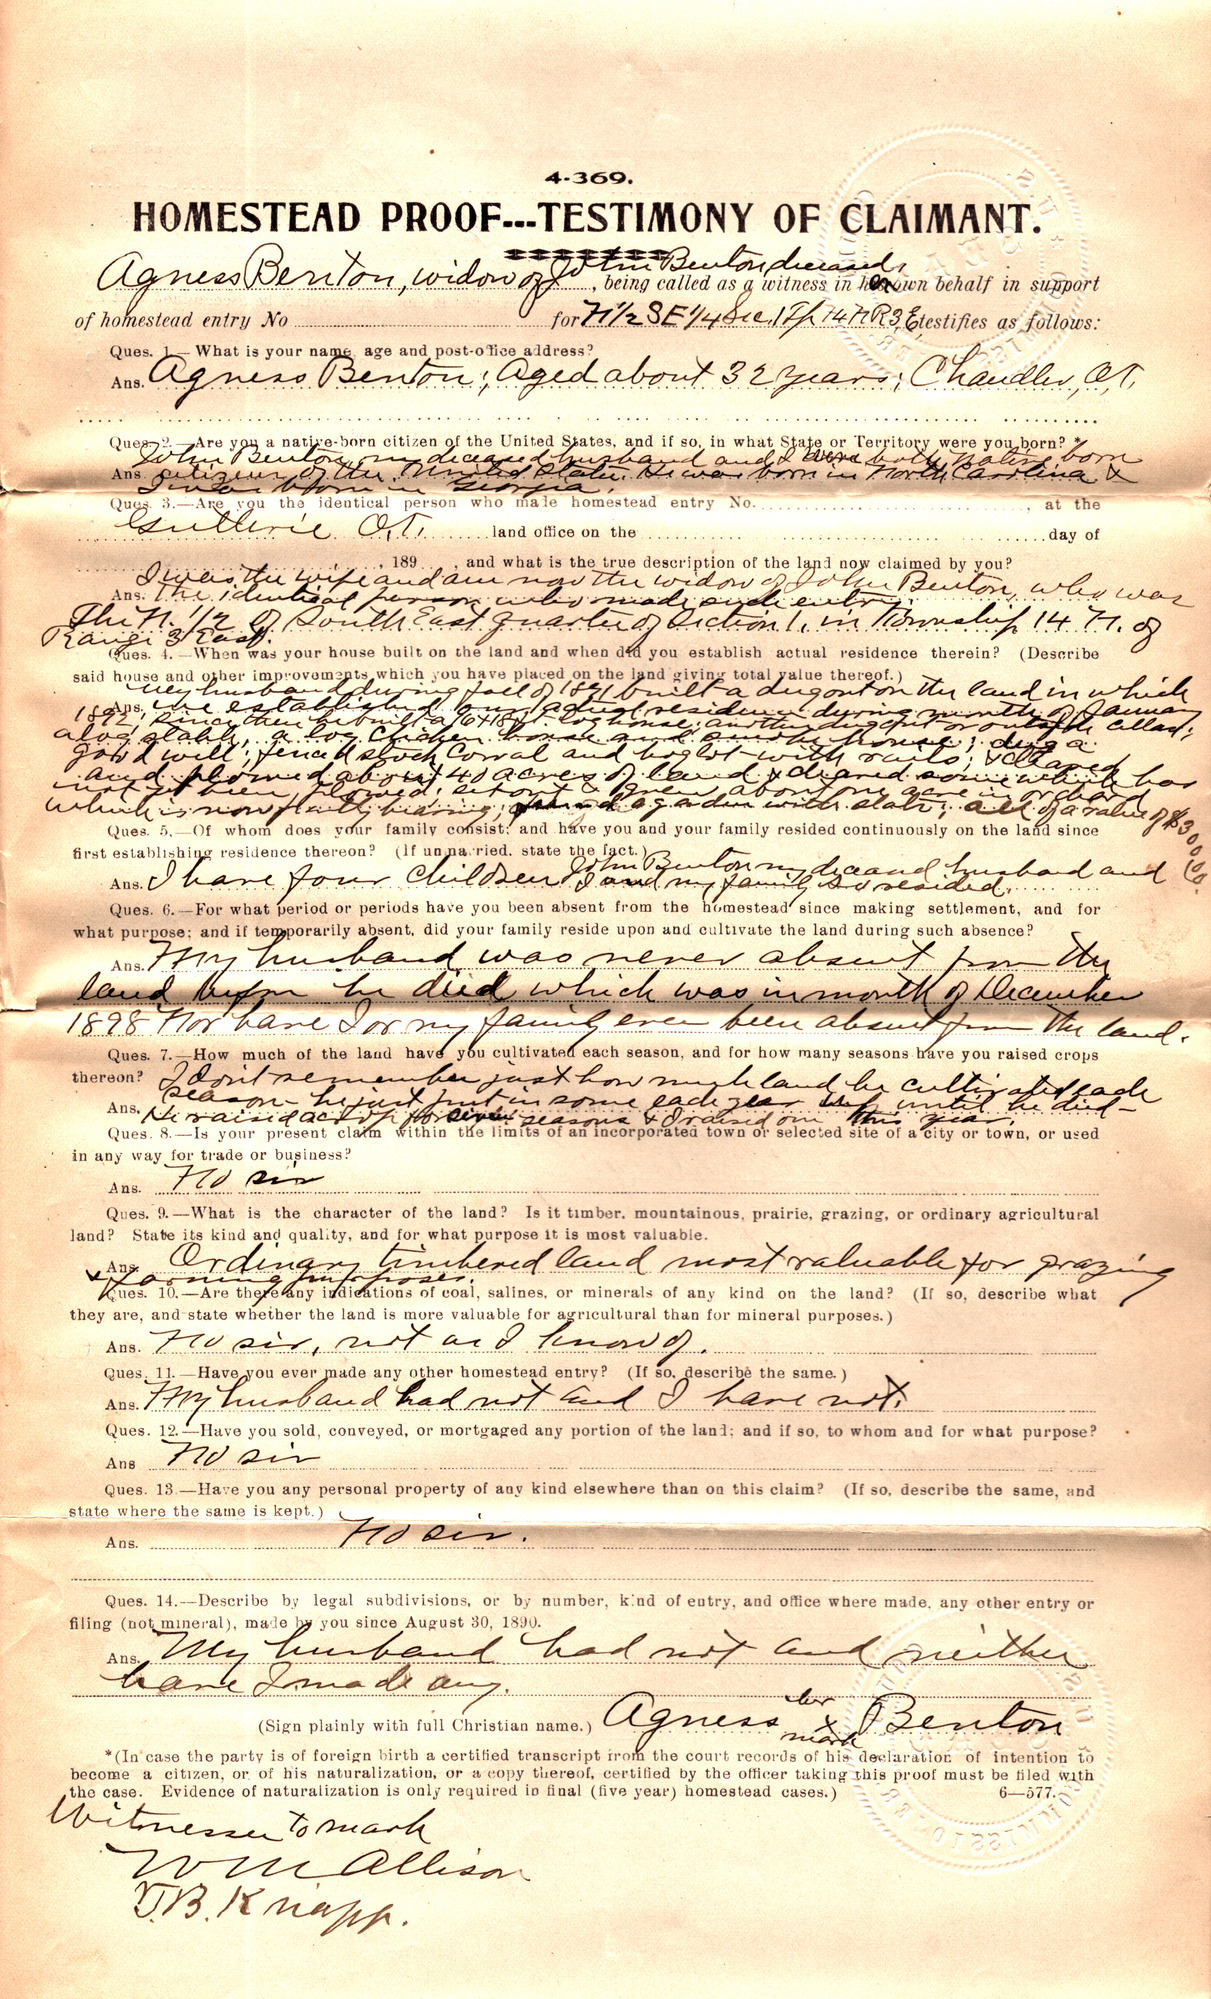 4-369.
HOMESTEAD PROOF---TESTIMONY OF CLAIMANT.
Agness Benton, widow of John Benton, deceased, being called as a witness in her own behalf in support
of homestead entry No for N 1/2 SE 1/4 Sec. 1 Tp 14 N R 3 E, testifies as follows:
Ques. 1.—What is your name, age and post-office address?
Ans. Agness Benton; Aged about 32 years; Chandler, O.T.
Ques. 2.—Are you a native-born citizen of the United States, and if so, in what State or Territory were you born? *
John Benton my deceased husband and I were both native born
Ans. citizens of the United States. He was born in North Carolina &
I was born in Georgia.
Ques. 3.—Are you the identical person who made homestead entry No. , at the
Guthrie O.T. land office on the day of
, 189 , and what is the true description of the land now claimed by you?
I was the wife and am now the widow of John Benton, who was
Ans. the identical person who made such entry.
The N. 1/2 of South East quarter of Section 1, in Township 14 N. of
Range 3 East.
Ques. 4.—When was your house built on the land and when did you establish actual residence therein? (Describe
said house and other improvements which you have placed on the land giving total value thereof.)
My husband during fall of 1891 built a dugout on the land in which
Ans. we established our actual residence during month of January
1892; since then he built a 16x18 ft. log house; another dugout or outside cellar;
a log stable, a log chicken house and smoke house; dug a
good well; fenced stock corral and hog lot with rails; & cleared
and plowed about 40 acres of land & cleared some which has
not yet been plowed; set out & grew about one acre in orchard
which is now fruit bearing; fenced a garden with slats; all of a value of $300.00.
Ques. 5.—Of whom does your family consist; and have you and your family resided continuously on the land since
first establishing residence thereon? (If unmarried, state the fact.)
John Benton my deceased husband and
Ans. I have four children I and my family so resided.
Ques. 6.—For what period or periods have you been absent from the homestead since making settlement, and for
what purpose; and if temporarily absent, did your family reside upon and cultivate the land during such absence?
Ans. My husband was never absent from the
land before he died which was in month of December
1898 Nor have I or my family ever been absent from the land.
Ques. 7.—How much of the land have you cultivated each season, and for how many seasons have you raised crops
thereon? I don't remember just how much land he cultivated each
season - he just put in some each year until he died -
Ans. He raised a crop for seven seasons & I raised one this year.
Ques. 8.—Is your present claim within the limits of an incorporated town or selected site of a city or town, or used
in any way for trade or business?
Ans. No sir
Ques. 9.—What is the character of the land? Is it timber, mountainous, prairie, grazing, or ordinary agricultural
land? State its kind and quality, and for what purpose it is most valuable.
Ans. Ordinary timbered land most valuable for grazing
& farming purposes.
Ques. 10.—Are there any indications of coal, salines, or minerals of any kind on the land? (If so, describe what
they are, and state whether the land is more valuable for agricultural than for mineral purposes.)
Ans. No sir, not as I know of.
Ques. 11.—Have you ever made any other homestead entry? (If so, describe the same.)
Ans. My husband had not and I have not.
Ques. 12.—Have you sold, conveyed, or mortgaged any portion of the land; and if so, to whom and for what purpose?
Ans No sir
Ques. 13.—Have you any personal property of any kind elsewhere than on this claim? (If so, describe the same, and
state where the same is kept.)
Ans. No sir.
Ques. 14.—Describe by legal subdivisions, or by number, kind of entry, and office where made, any other entry or
filing (not mineral), made by you since August 30, 1890.
Ans. My husband had not and neither
have I made any.
(Sign plainly with full Christian name.) Agness her x mark Benton
*(In case the party is of foreign birth a certified transcript from the court records of his declaration of intention to
become a citizen, or of his naturalization, or a copy thereof, certified by the officer taking this proof must be filed with
the case. Evidence of naturalization is only required in final (five year) homestead cases.) 6—577.
Witnesses to mark
Wm Allison
J.B. Knapp.